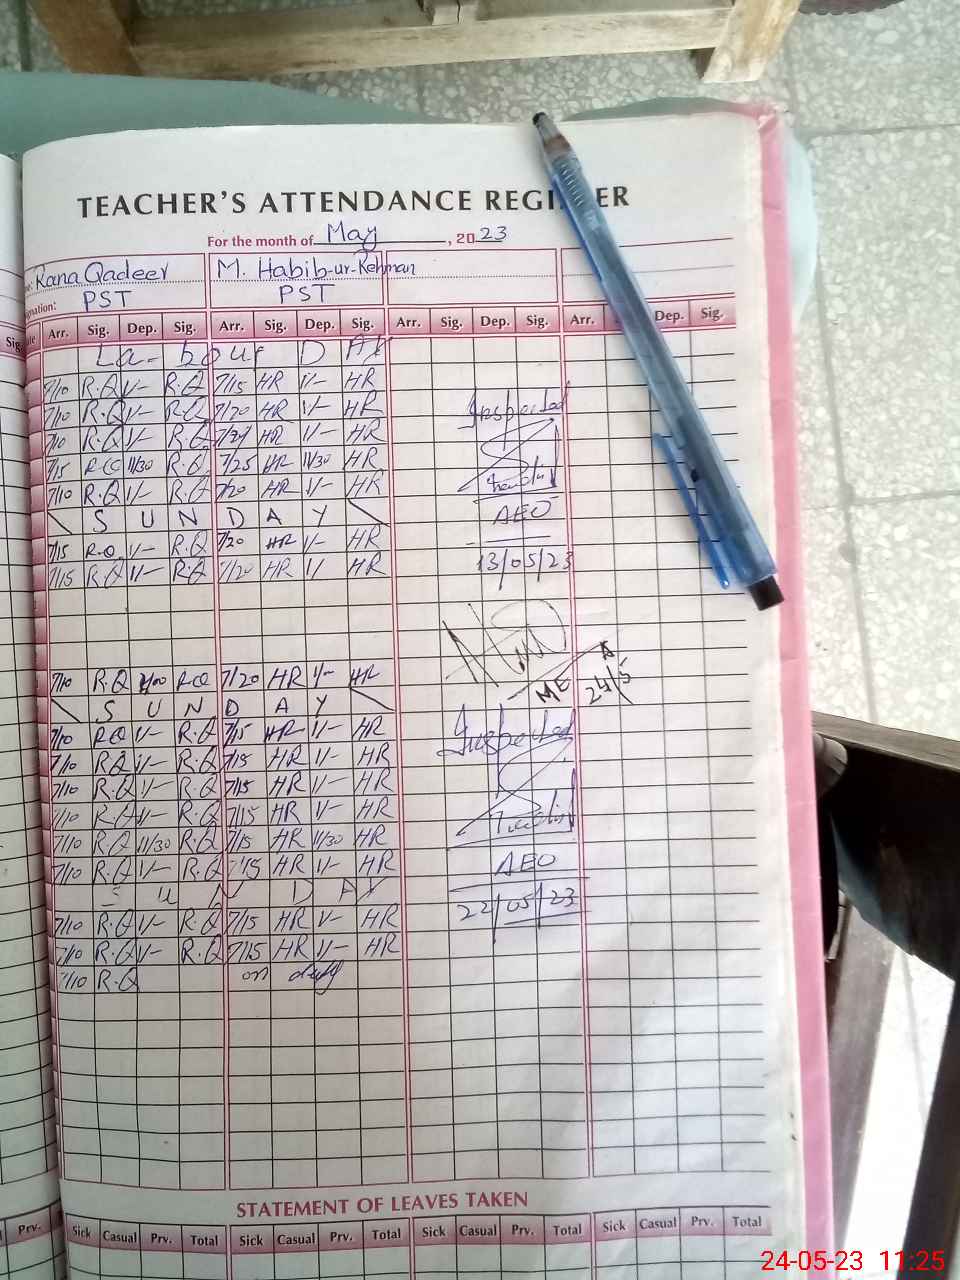 TEACHER'S ATTENDANCE REGISTER
For the month of May, 2023
Rana Qadeer M. Habib-ur-Rehman
PST PST
Arr. Sig. Dep. Sig. Arr. Sig. Dep. Sig. Arr. Sig. Dep. Sig. Arr. Dep. Sig.
La-bour DAY
7/10 R.Q 1/- R.Q 7/15 HR 1/- HR
7/10 R.Q 1/- R.Q 7/20 HR 1/- HR
Inspected
7/10 R.Q 1/- R.Q HR 1/- HR
7/15 R.Q 11/30 R.Q 7/25 HR 11/30 HR
7/10 R.Q 1/- R.Q 7/20 HR 1/- HR
SUNDAY
AEO
7/15 R.Q 1/- R.Q 7/20 HR 1/- HR
7/15 R.Q 1/- R.Q 7/20 HR 1/- HR
13/05/23
7/10 R.Q R.Q 7/20 HR 1/- HR
MEA
24/5
SUNDAY
7/10 R.Q 1/- R.Q 7/15 HR 1/- HR
Inspected
7/10 R.Q 1/- R.Q 7/15 HR 1/- HR
7/10 R.Q 1/- R.Q 7/15 HR 1/- HR
7/10 R.Q 1/- R.Q 7/15 HR 1/- HR
7/10 R.Q 11/30 R.Q 7/15 HR 11/30 HR
7/10 R.Q 1/- R.Q 7/15 HR 1/- HR
AEO
SUNDAY
22/05/23
7/10 R.Q 1/- R.Q 7/15 HR 1/- HR
7/10 R.Q 1/- R.Q 7/15 HR 1/- HR
7/10 R.Q on duty
STATEMENT OF LEAVES TAKEN
Prv. Sick Casual Prv. Total Sick Casual Prv. Total Sick Casual Prv. Total Sick Casual Prv. Total
24-05-23 11:25